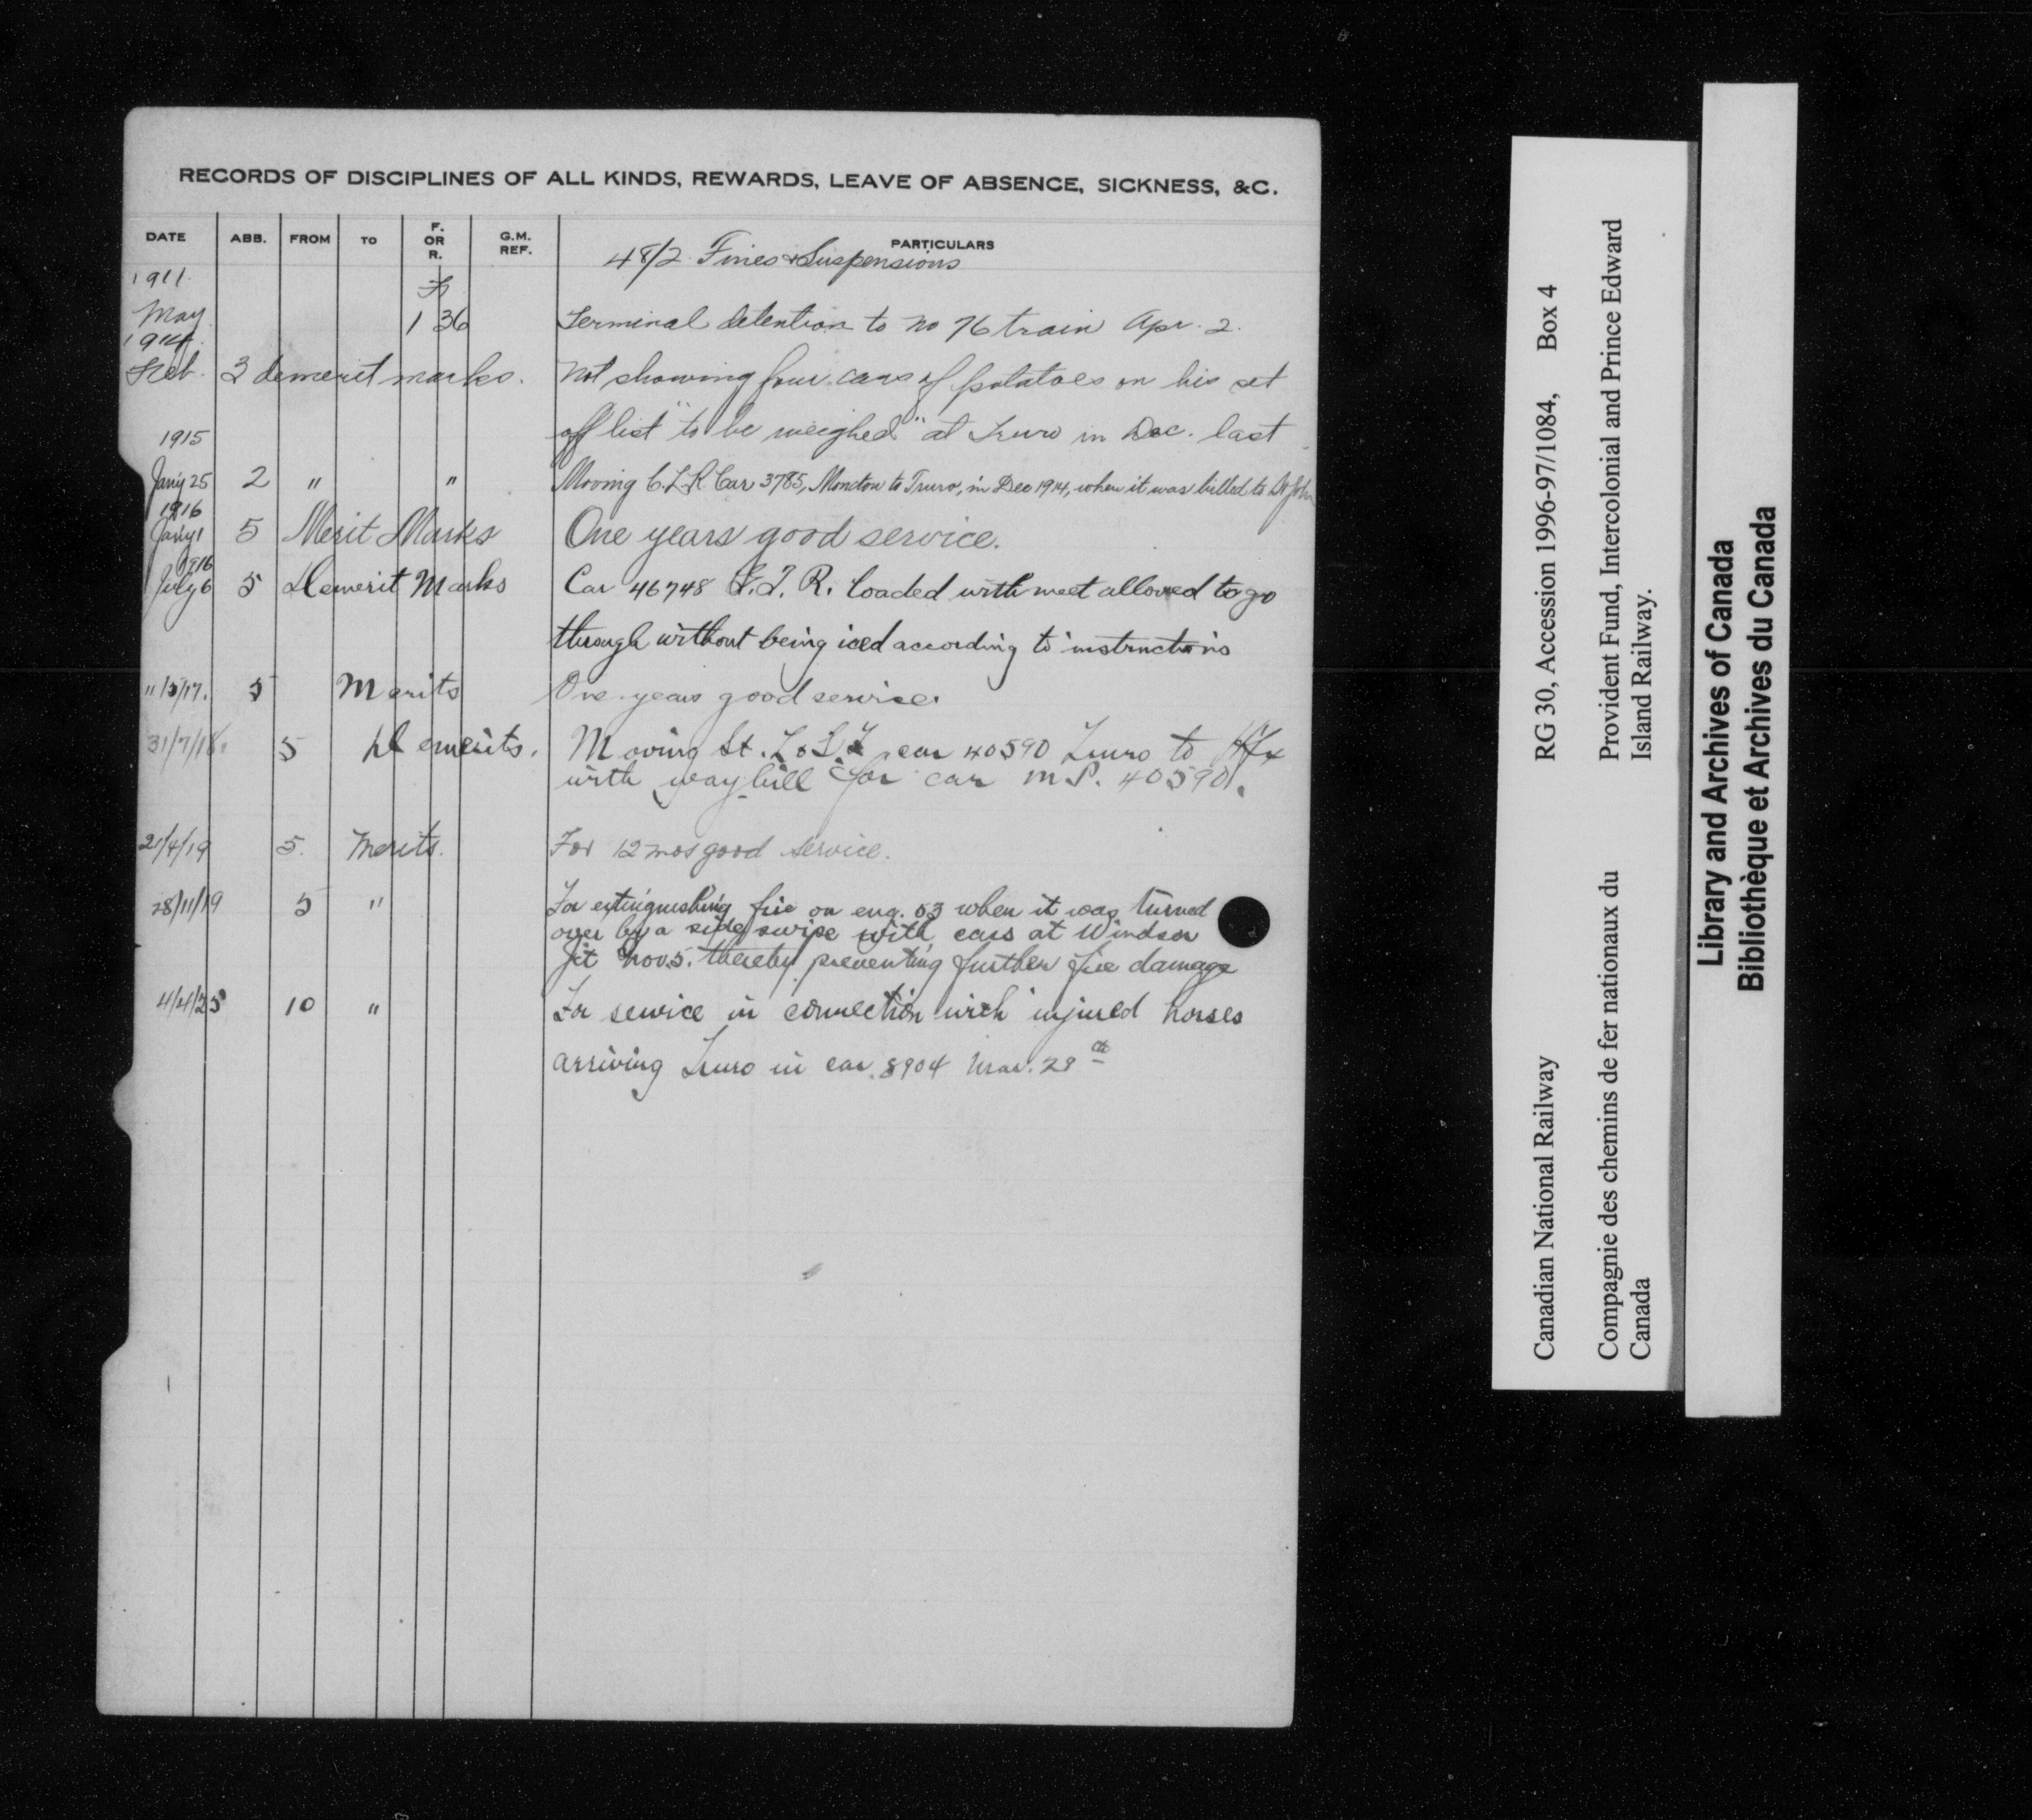 RECORDS OF DISCIPLINES OF ALL KINDS, REWARDS, LEAVE OF ABSENCE, SICKNESS, &C.
DATE ABB. FROM TO F. OR R. G.M. REF. PARTICULARS
48/2 Fines & Suspensions
1911. F
May 1 36 Terminal detention to no 76 train Apr. 2.
1914.
Feb. 3 demerit marks. Not showing four cars of potatoes on his set
off list "to be weighed" at Truro in Dec. last
1915
Jan'y 25 2 " " Moving C.L.R Car 3785, Moncton to Truro, in Dec 1914, when it was billed to St John
1916
Jan'y 1 5 Merit Marks One years good service.
1916
July 6 5 Demerit Marks Car 46748 G.T.R. loaded with meet allowed to go
through without being iced according to instructions
/17. 5 Merits One years good service.
31/7/18. 5 Demerits. Moving St. L & car 40590 Truro to Hfx
with way-bill for car M.P. 40590.
21/4/19 5. Merits. For 12 mos good service.
28/11/19 5 " For extinguishing fire on eng. 53 when it was turned
over by a side swipe with cars at Windsor
Jct Nov 5. thereby preventing further fire damage
4/4/25 10 " For service in connection with injured horses
arriving Truro in car 8904 Mar. 28th
Canadian National Railway RG 30, Accession 1996-97/1084, Box 4
Compagnie des chemins de fer nationaux du Canada
Provident Fund, Intercolonial and Prince Edward Island Railway.
Library and Archives of Canada
Bibliothèque et Archives du Canada